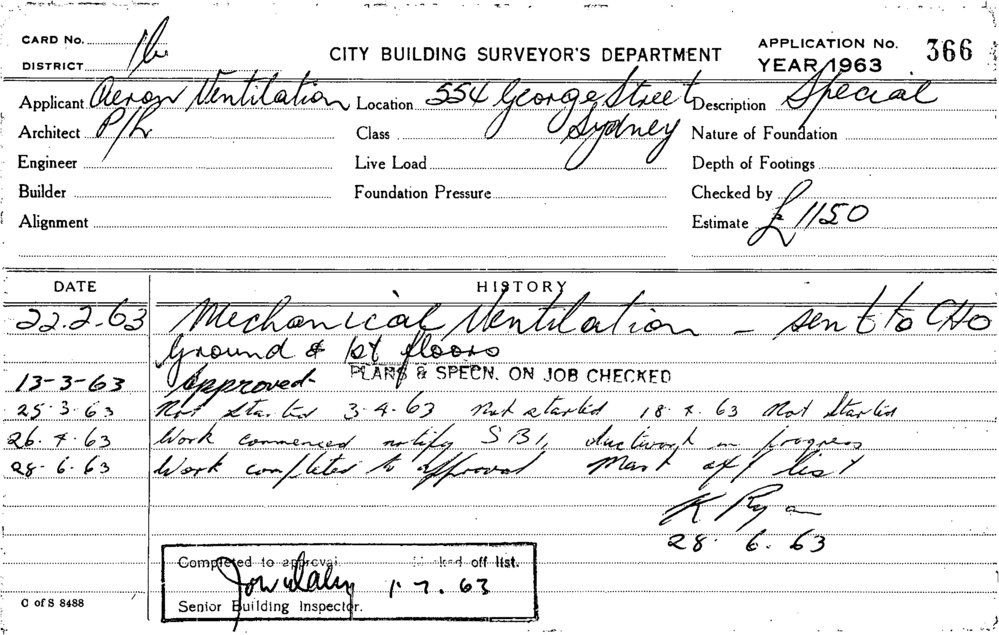 CARD No. 16
DISTRICT
CITY BUILDING SURVEYOR'S DEPARTMENT
APPLICATION No. 366
YEAR 1963
Applicant Aeron Ventilation Location 554 George Street Description Special
Architect P/L Class Sydney Nature of Foundation
Engineer Live Load Depth of Footings
Builder Foundation Pressure Checked by
Alignment Estimate £1150
DATE HISTORY
22.2.63 Mechanical Ventilation – sent to CHO
Ground & 1st floors
PLANS & SPECN. ON JOB CHECKED
13-3-63 Approved-
25.3.63 Not started 3.4.63 Not started 18.4.63 Not started
26.4.63 Work commenced notify SBI, ductwork in progress
28.6.63 Work completed to approval Mark off list
K Ryan
28.6.63
Completed to approval. Marked off list.
1.7.63
Senior Building Inspector.
C of S 8488